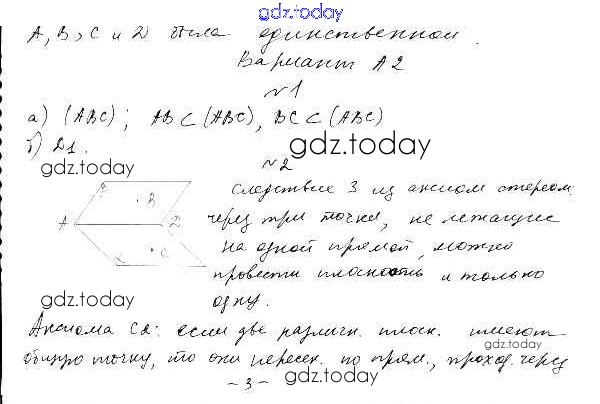 gdz.today
A, B, C и D была единственной.
Вариант А2
№1
а) (ABC); AB ⊂ (ABC), BC ⊂ (ABC)
б) D1.
gdz.today
gdz.today
№2
B
A
D
C
Следствие 3 из аксиом стереом:
через три точки, не лежащие
на одной прямой, можно
провести плоскость и только
одну.
gdz.today
Аксиома С2: если две различн. плоск. имеют
gdz.today
общую точку, то они пересек. по прям., проход. через
- 3 -
gdz.today